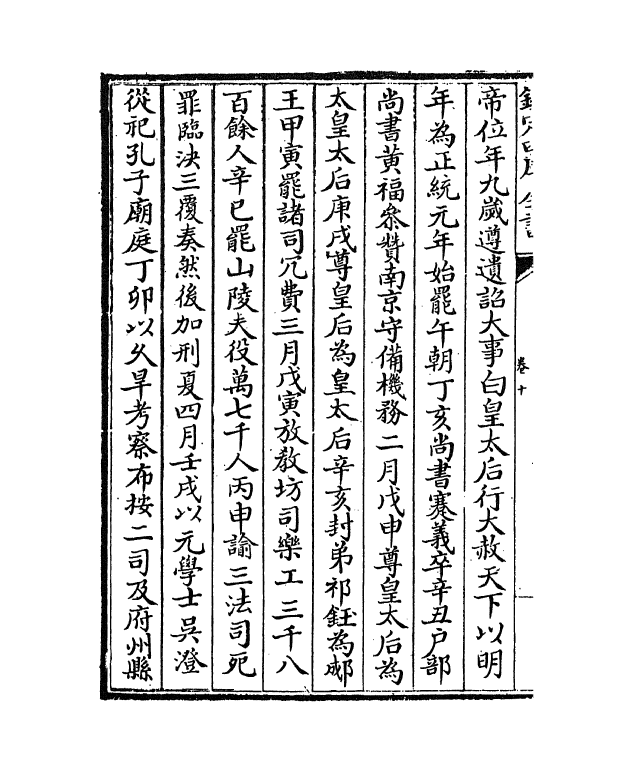 欽定四庫全書
卷十
帝位年九歲遵遺詔大事白皇太后行大赦天下以明
年為正統元年始罷午朝丁亥尚書蹇義卒辛丑户部
尚書黃福叅贊南京守備機務二月戊申尊皇太后為
太皇太后庚戌尊皇后為皇太后辛亥封弟祁鈺為郕
王甲寅罷諸司冗費三月戊寅放教坊司樂工三千八
百餘人辛巳罷山陵夫役萬七千人丙申諭三法司死
罪臨決三覆奏然後加刑夏四月壬戌以元學士吳澄
從祀孔子廟庭丁卯以久旱考察布按二司及府州縣